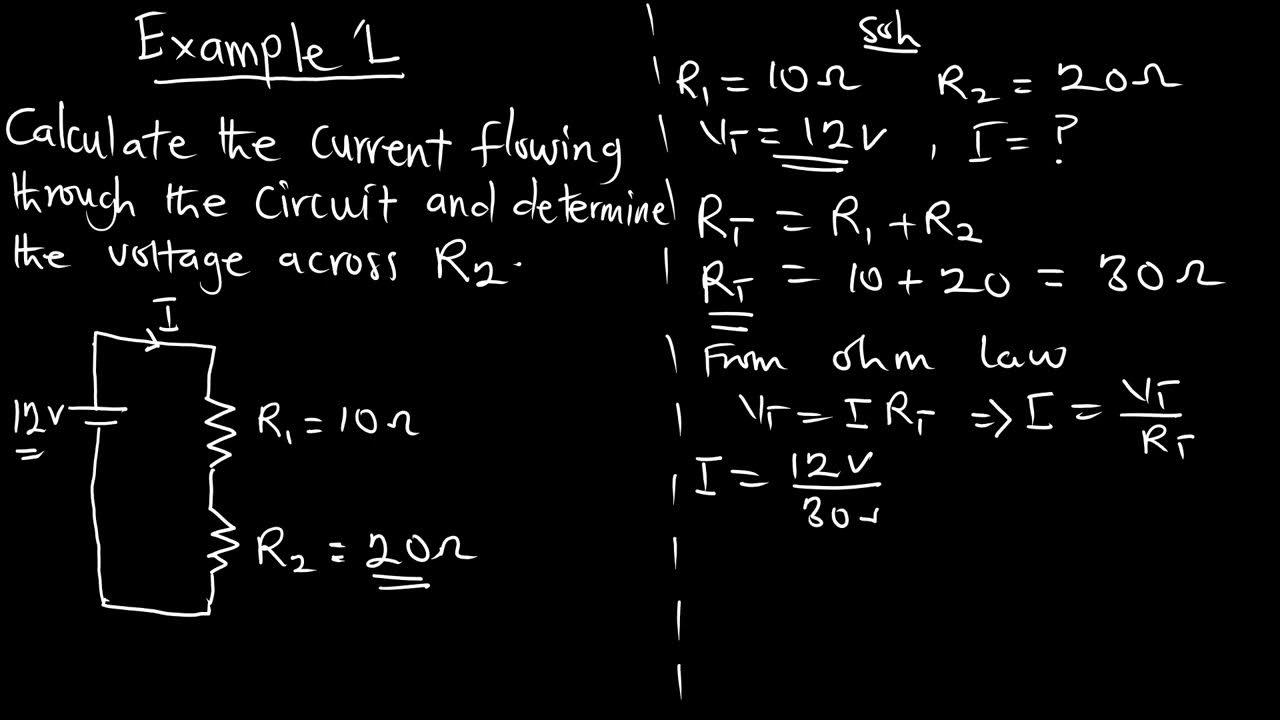 Example 1
Calculate the current flowing
through the circuit and determine
the voltage across R₂.
I
12V
R₁ = 10Ω
R₂ = 20Ω
Soln
R₁ = 10Ω R₂ = 20Ω
V_T = 12V , I = ?
R_T = R₁ + R₂
R_T = 10 + 20 = 30Ω
From ohm law
V_T = I R_T => I = V_T / R_T
I = 12V / 30